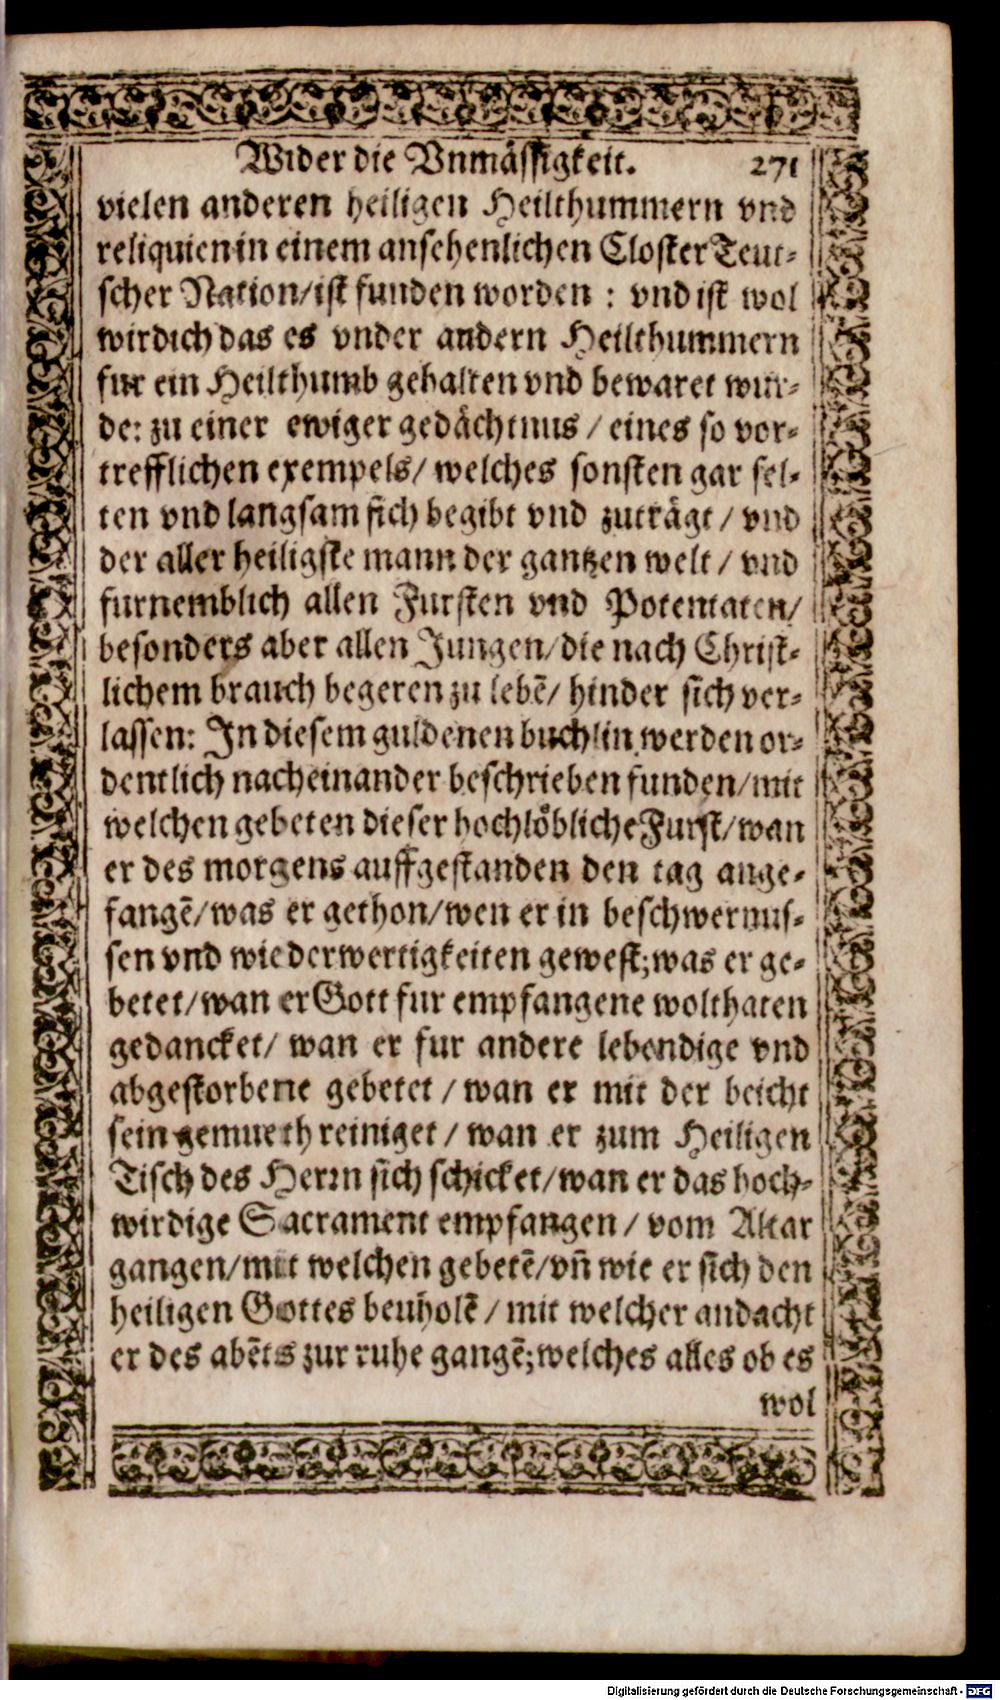 Wider die Vnmässigkeit. 271
vielen anderen heiligen Heilthummern vnd
reliquien in einem ansehenlichen Closter Teut-
scher Nation/ist funden worden : vnd ist wol
wirdich das es vnder andern Heilthummern
fur ein Heilthumb gehalten vnd bewaret wur-
de: zu einer ewiger gedächtnus / eines so vor-
trefflichen exempels/ welches sonsten gar sel-
ten vnd langsam sich begibt vnd zuträgt / vnd
der aller heiligste mann der gantzen welt / vnd
furnemblich allen Fursten vnd Potentaten/
besonders aber allen Jungen/die nach Christ-
lichem brauch begeren zu lebē/ hinder sich ver-
lassen: In diesem guldenen buchlin werden or-
dentlich nacheinander beschrieben funden/mit
welchen gebeten dieser hochlöbliche Furst/wan
er des morgens auffgestanden den tag ange-
fangē/was er gethon/wen er in beschwernus-
sen vnd wiederwertigkeiten gewest;was er ge-
betet/wan er Gott fur empfangene wolthaten
gedancket/ wan er fur andere lebendige vnd
abgestorbene gebetet / wan er mit der beicht
sein gemueth reiniget / wan er zum Heiligen
Tisch des Herrn sich schicket/wan er das hoch-
wirdige Sacrament empfangen / vom Altar
gangen/mit welchen gebetē/vn̄ wie er sich den
heiligen Gottes beuholē / mit welcher andacht
er des abēts zur ruhe gangē;welches alles ob es
wol
Digitalisierung gefördert durch die Deutsche Forschungsgemeinschaft - DFG